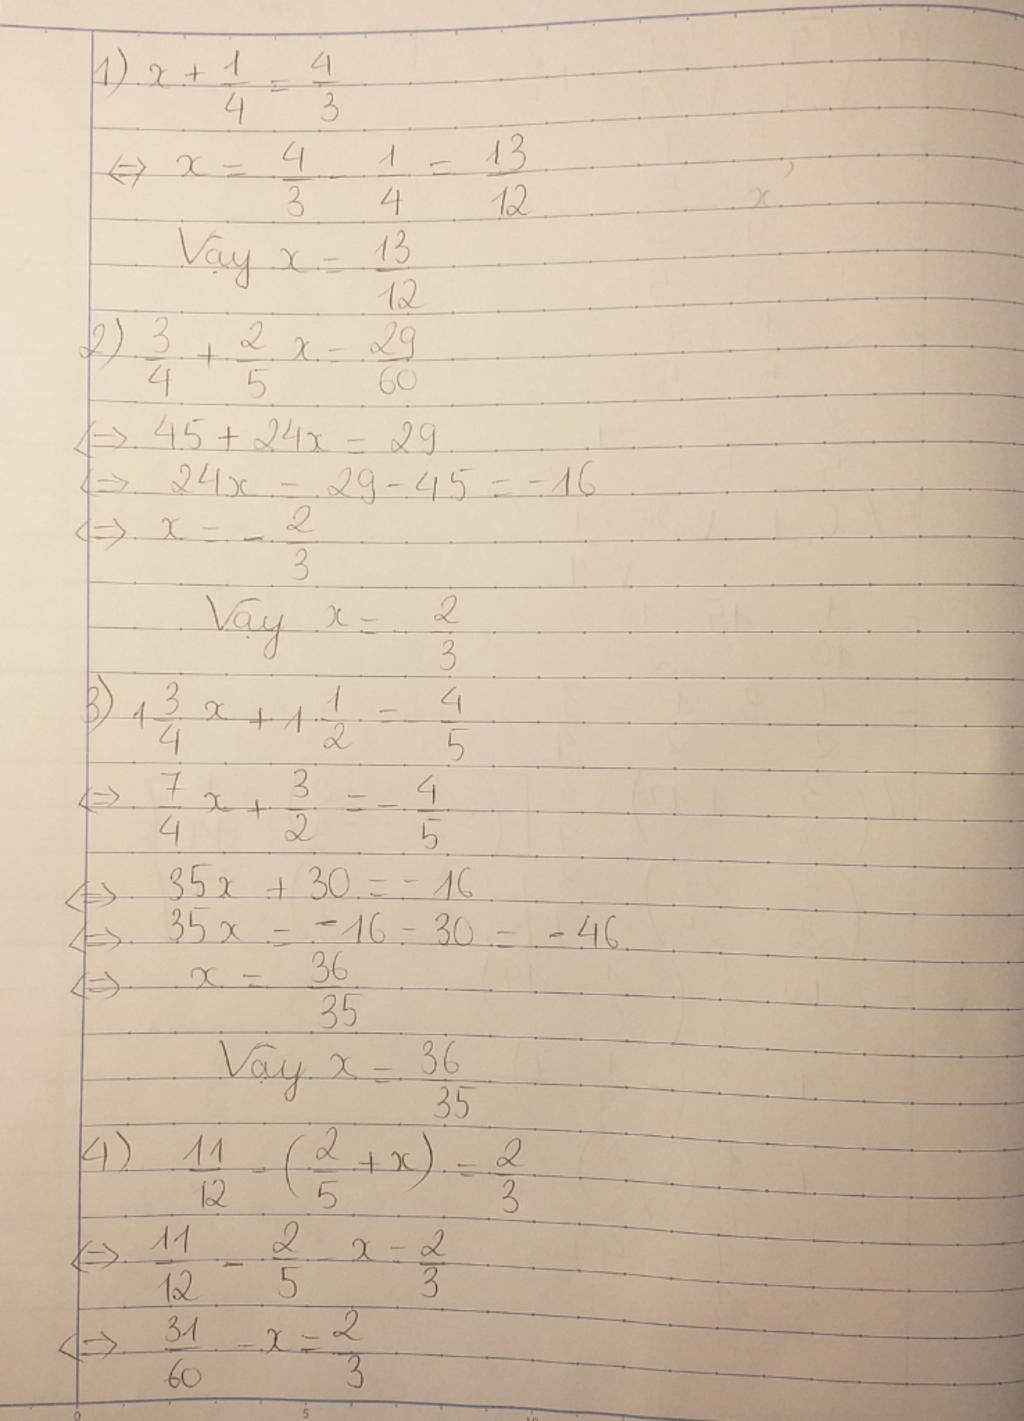 1) x + 1/4 = 4/3
⇔ x = 4/3 - 1/4 = 13/12
Vậy x = 13/12
2) 3/4 + 2/5 x = 29/60
⇔ 45 + 24x = 29
⇔ 24x = 29 - 45 = -16
⇔ x = - 2/3
Vậy x = 2/3
3) 1 3/4 x + 1 1/2 = 4/5
⇔ 7/4 x + 3/2 = - 4/5
⇔ 35x + 30 = - 16
⇔ 35x = -16 - 30 = -46
⇔ x = 36/35
Vậy x = 36/35
4) 11/12 - (2/5 + x) = 2/3
⇔ 11/12 - 2/5 - x = 2/3
⇔ 31/60 - x = 2/3